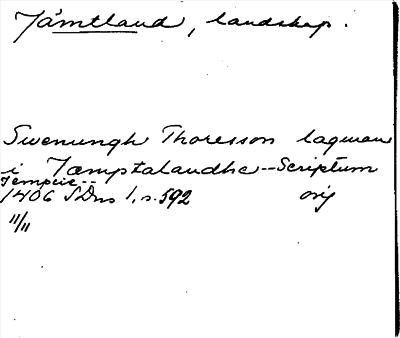 Jämtland, landskap.
Swenungh Thoresson lagman
i Jæmptalandhe -- Scriptum
Jempcie --
1406 SDns 1, s. 592 orig
11/11